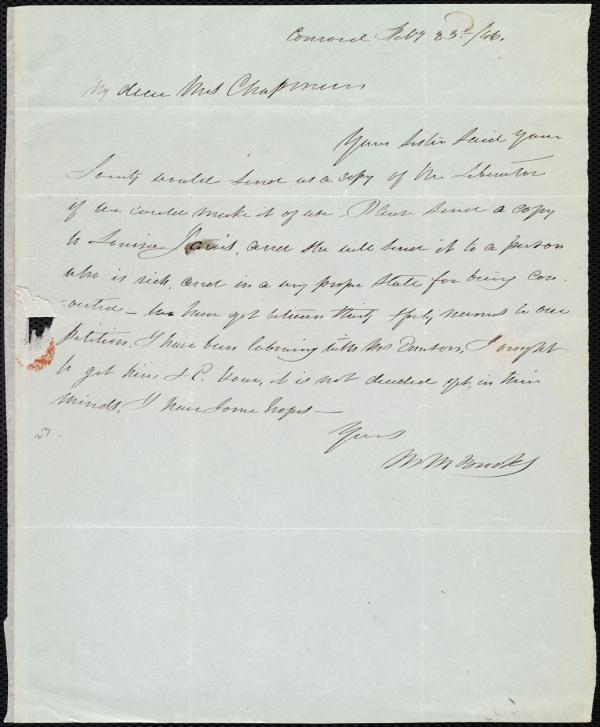 Concord Feby 23d/46.
My dear Mrs Chapman
Your sister said your
Society would send us a copy of the Liberator
if we could make it of use - Please send a copy
to Louisa and she will send it to a person
who is sick, and in a very proper state for being con-
-verted - We have got between thirty & forty names to our
Petition. I have been laboring with Mr Emerson, I ought
to get him, & C. it is not decided yet, in their
minds, I have some hopes -
Yours
M M Brooks